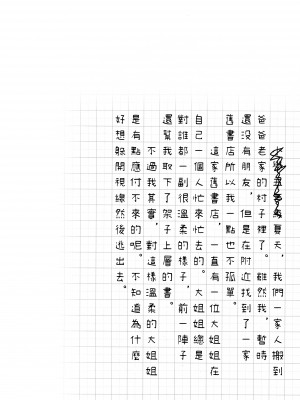 夏天，我們一家人搬到
爸爸老家的村子裡了。雖然我，暫時
還沒有朋友，但是在附近找到了一家
舊書店所以我一點也不孤單。
這家舊書店，一直有一位大姐姐在
自己一個人忙來忙去的。大姐姐總是
對誰都一副很溫柔的樣子，前一陣子
還幫我取下了架子上層的書。
不過我其實，對這樣溫柔的大姐姐
是有點應付不來的呢。不知道為什麼
好想躲開視線然後逃出去。